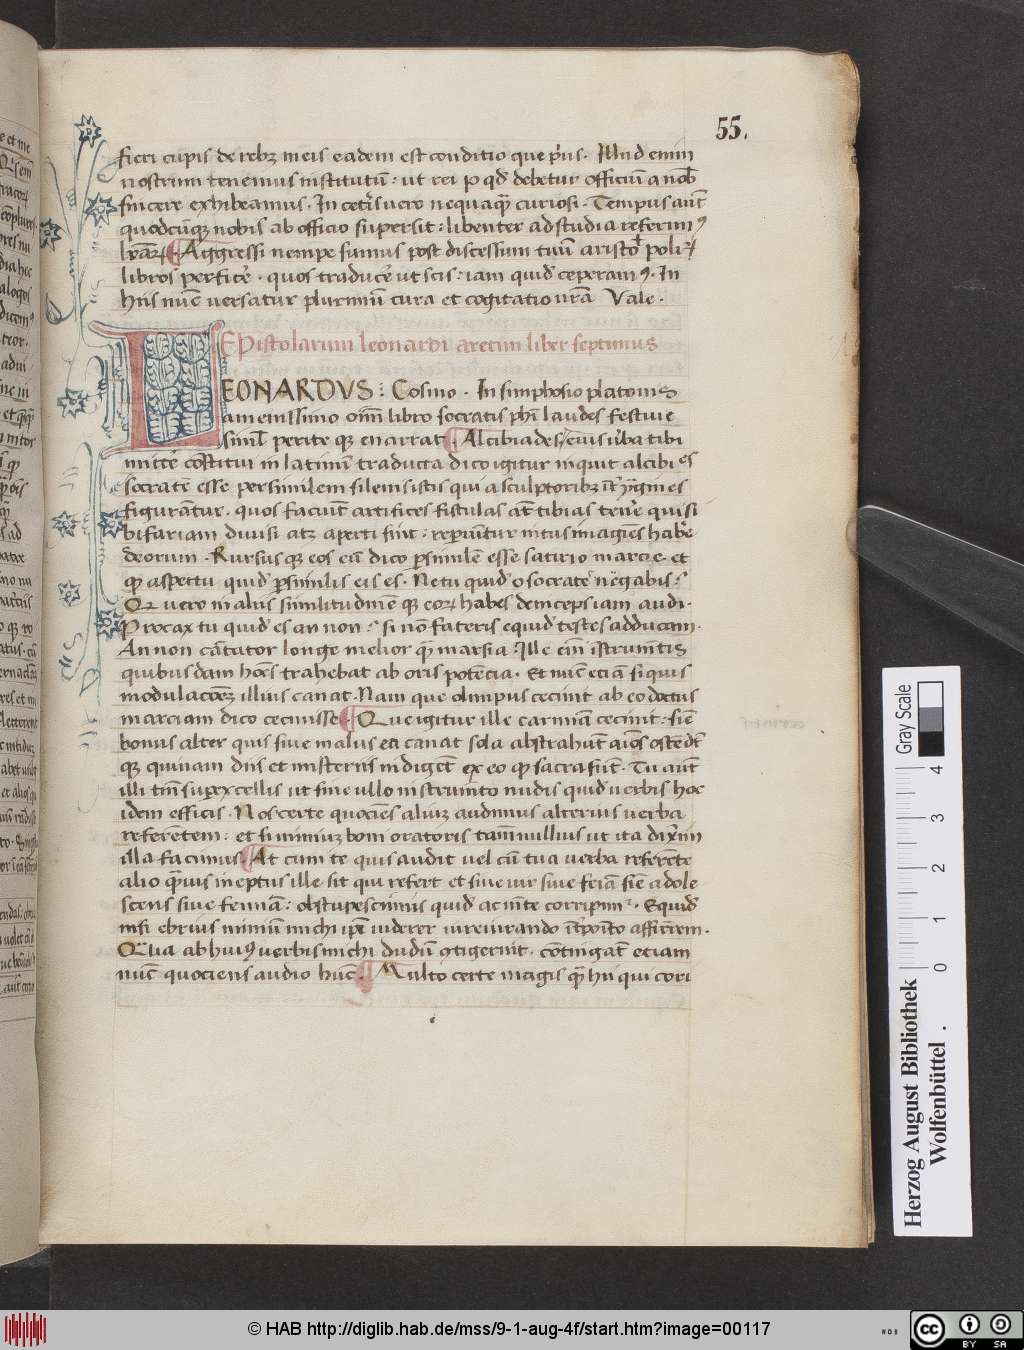 55.
fieri cupis de rebꝫ meis eadem est conditio que pius. Illud enim
nostrum tenemus institutū: ut rei p qd̄ debetur officiū a nob̄
sincere exhibeamus. In cet̄is vero nequaq̄ curiosi. Tempus aūt
quodcūqꝫ nobis ab officio supersit: libenter ad studia referimꝰ
Aggressi nempe sumus post discessum tuū aristo polit
libros perficē. quos traducē ut scis: iam quid ceperamꝰ. In
hiis nūc versatur plurimū cura et cogitatio nrā Vale.
EPistolarum leonardi aretini liber septimus
LEONARDVS: Cosmo. In simphosio platonis
amenissimo oīm libro socratis phi laudes festive
siml̄ perite qꝫ enarrat. Alcibiades / cuiꝰ v̄ba tibi
mittē cōstitui in latinū traducta dico igitur inquit alcibides
socratē esse persimilem silenis istis qui a sculptoribꝫ īt ymgines
figurāntur. quos faciūt artifices fistulas aūt tibias tenē qui si
bifariam divisi atqꝫ aperti sint: reperiūtur intus imagīes habē
deorum. Rursus qꝫ eos eū dico p̄similē esse satirio marcie. et
qp aspectu quid p̄similis eis es. Ne tu quid o socratē negabis:
Qr vero in aliis similitudinē qꝫ eoꝝ habes deinceps iam audi.
Procax tu quid es an non: si nō fateris equid testes adducam.
An non cātator longe melior qᷓ marsia: Ille eīm īstrumētis
quibusdam hoēs trahebat ab oris potēcia. Et nūc eciā si quis
modulacōeꝫ illius canat. Nam que olimpus cecinit ab eo doctus
marciam dico cecinisse. Que igitur ille carmīa cecinit: siue
bonus alter quis siue malus ea canat sola abstrahūt aīos ostēdūt
qꝫ quinam diis et misteriis indigēt ex eo qp sacra sūt. Tu aūt
illi tm̄ superexcellis ut sine ullo instrumēto nudis quid verbis hoc
idem efficis. Nos certe quociēs aliuꝫ audimus alterius verba
referētem: et si nimiuꝫ boni oratoris tamē nullius ut ita dixīm
illa facimus. At cum te quis audit vel cū tua verba referēte
alio qᷓuis ineptus ille sit qui refert et siue vir siue femīa siue adole
scens siue femīa: obstupescimus quid ac mēte corripimr. Equid
nisi ebrius nimiū michi ip̄e viderer iureiurando īt̄posito affirmarem.
Qualia ab huiꝰ verbis michi dudū ꝯtigerint. cōtingāt eciam
nūc quociens audio hūc. Multo certe magis qᷓ hii qui cori
Gray Scale
0 1 2 3 4
Herzog August Bibliothek
Wolfenbüttel .
© HAB http://diglib.hab.de/mss/9-1-aug-4f/start.htm?image=00117
WDB
cc BY SA